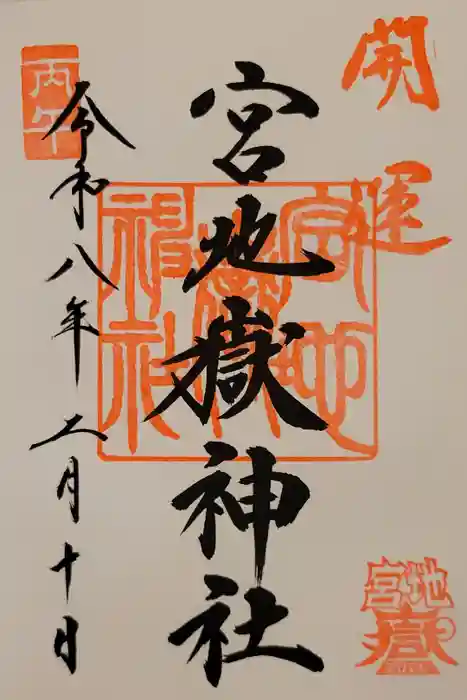 開運
宮地嶽神社
宮地嶽神社
令和八年二月十日
丙午
宮地嶽